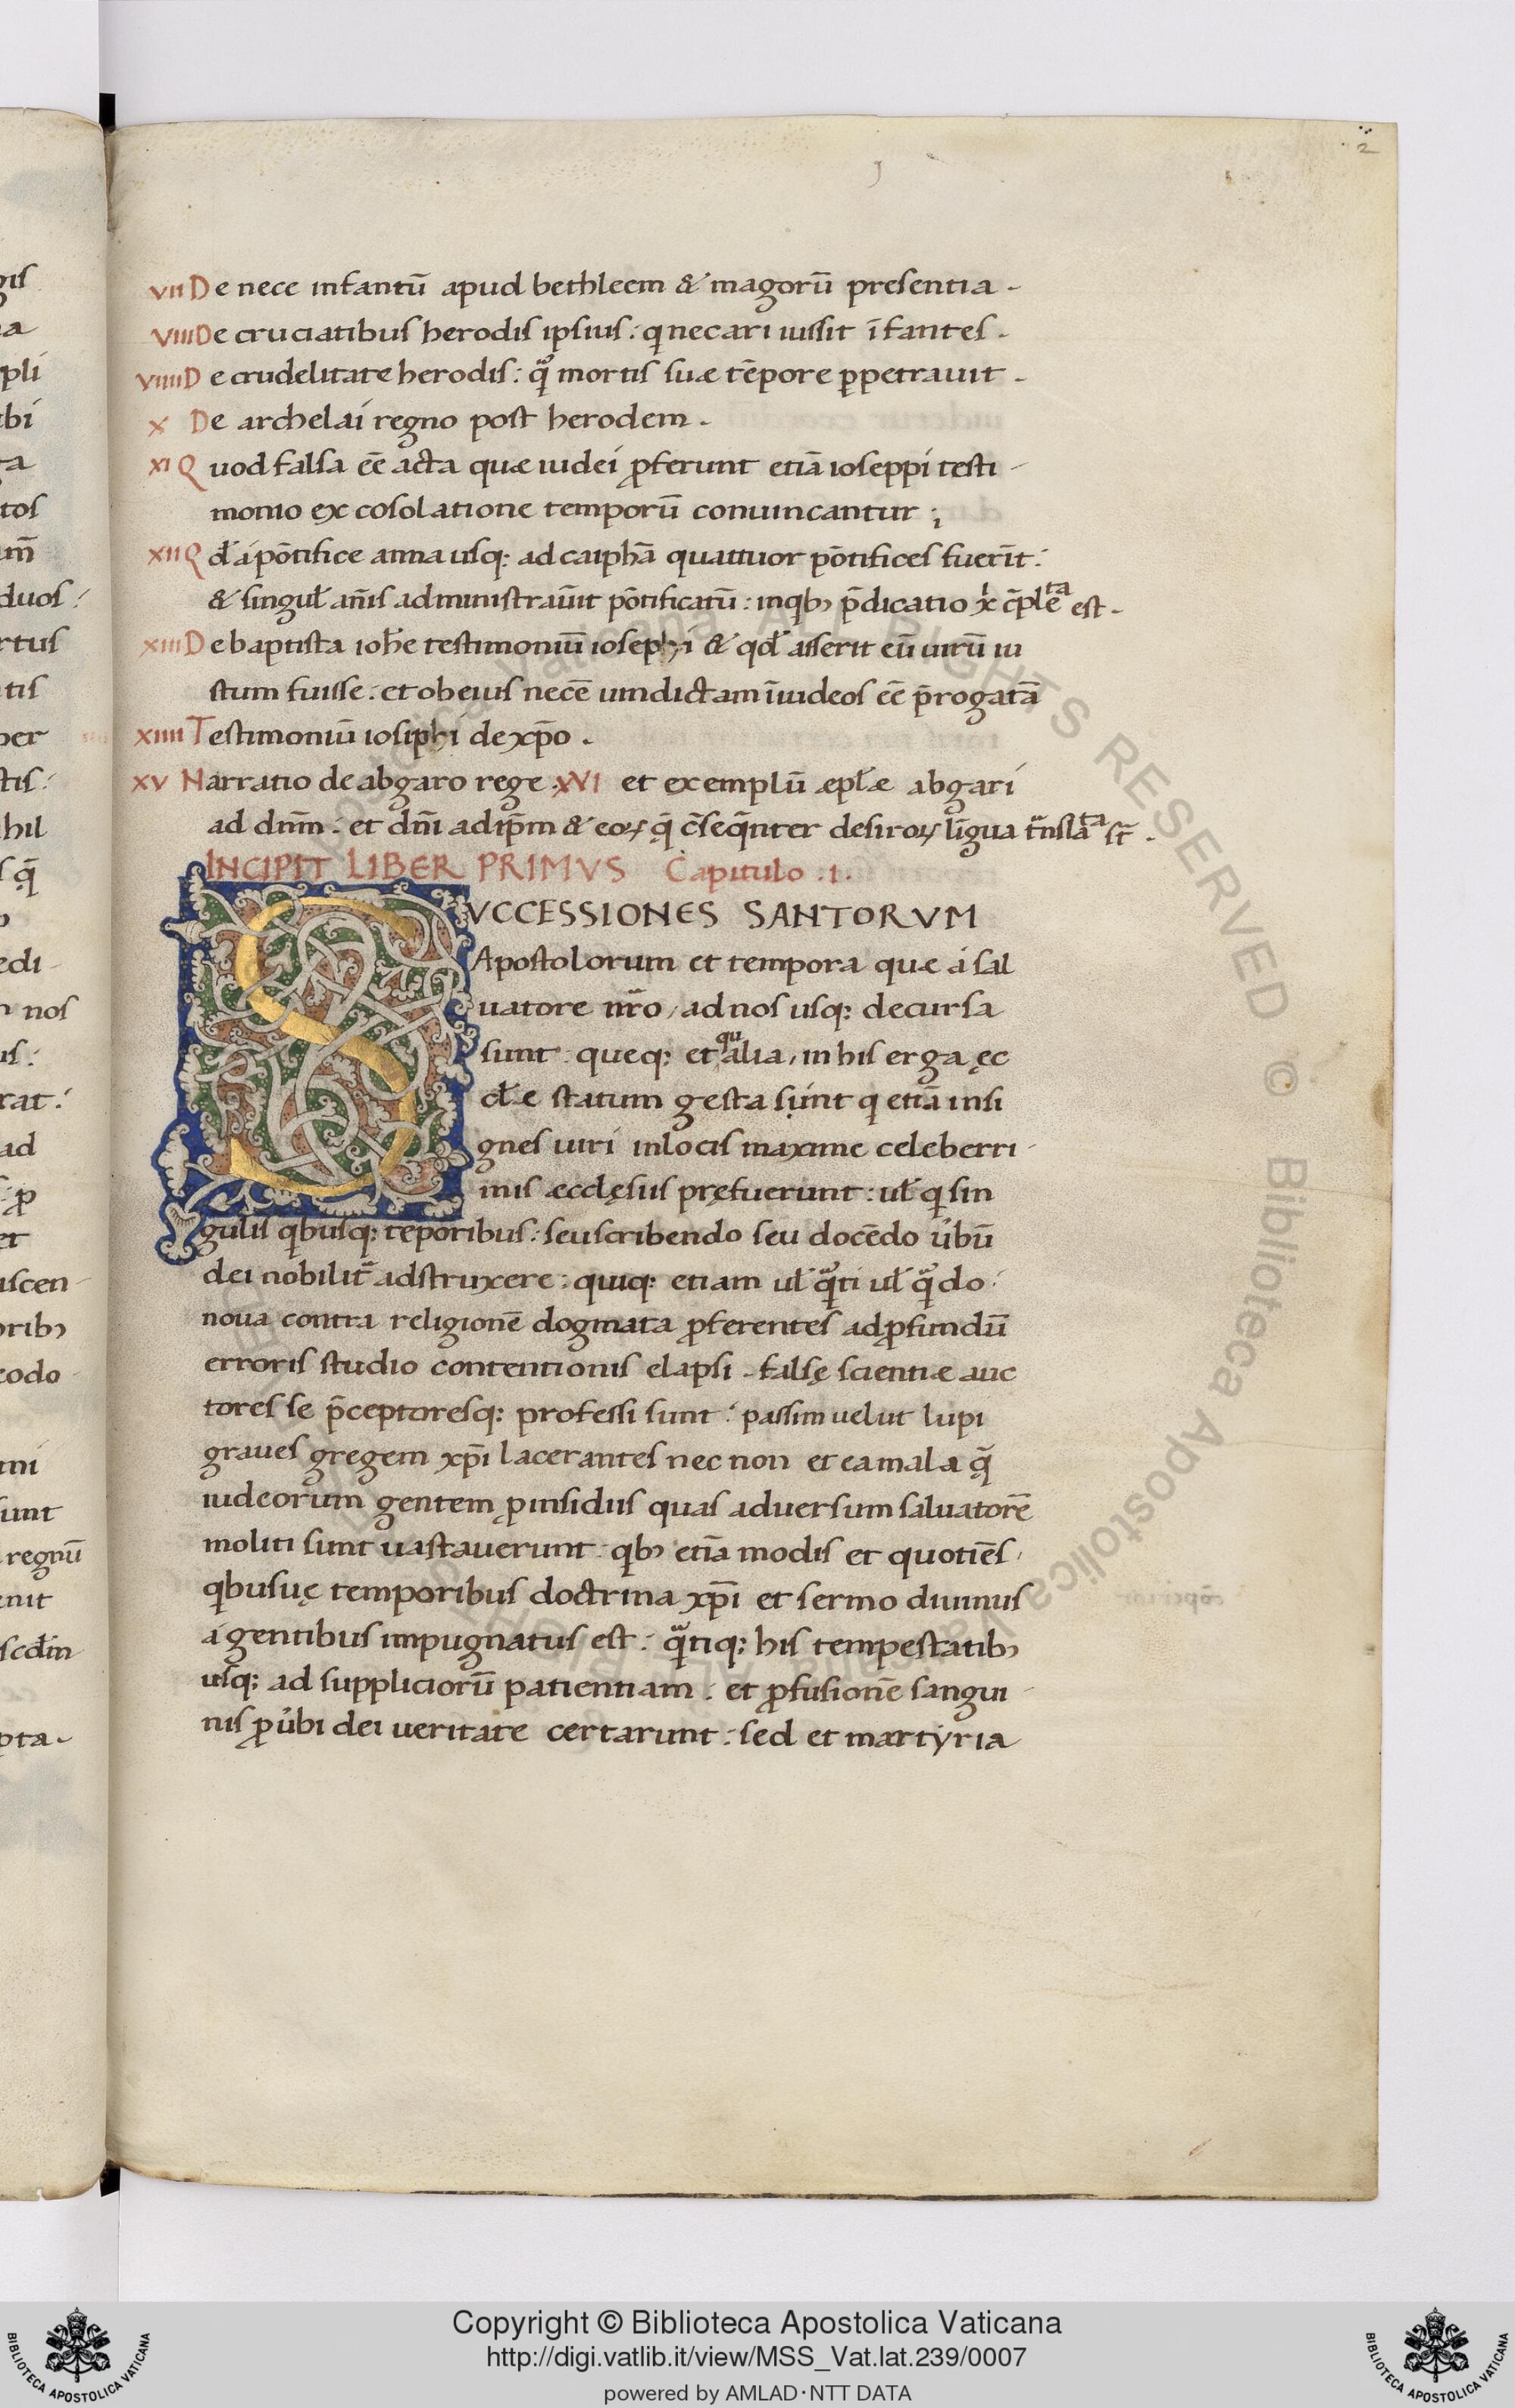 2
VII De nece infantū apud bethleem & magorū presentia .
VIII De cruciatibus herodis ipsius : q necari iussit īfantes .
VIIII De crudelitate herodis : quā mortis suæ tēpore ꝑpetrauit .
X De archelai regno post herodem .
XI Quod falsa eē acta quæ iudei ꝓferunt etiā ioseppi testi-
monio ex cosolatione temporū conuincantur ;
XII Qd́ á pōtifice anna usq; ad caiphā quattuor pōtifices fuerīt :
& singul' añis administraūit pōtificatū : in qb; p̄dicatio xͥ c̄pleta est .
XIII De baptista ioh̄e testimoniū iosephi & qd' asserit eū uirū iu
stum fuisse . et ob eius necē uindictam ī iudeos eē p̄rogatā
XIIII Testimoniū iosiphi de xp̄o .
XV Narratio de abgaro rege . XVI et exemplū æpl'æ abgari
ad dnm̄ : et dnī ad ip̄m & eoꝝ q̨̄ c̄seq̄nter desiroꝝ līgua t̄nslāta st̄ .
INCIPIT LIBER PRIMVS Capitulo .1.
SVCCESSIONES SANTORVM
Apostolorum et tempora quæ á sal
uatore nr̄o, ad nos usq; decursa
sunt : queq; et qualia, in his erga ęc
cl'æ statum gesta sunt q etiā insi
gnes uiri in locis maxime celeberri-
mis æcclęsiis pręfuerunt : ul' q sin
gulis qbusq; teporibus : seu scribendo seu docēdo úbū
dei nobilit̄ adstruxere : quiq; etiam ul' quāti ul' quādo :
noua contra religionē dogmata ꝓferentes ad ꝓfundū
erroris studio contentionis elapsi . falsę scientiæ auc
tores se p̄ceptoresq; professi sunt : passim uelut lupi
graues gregem xp̄i lacerantes nec non et ea mala q̨̄
iudeorum gentem ꝑ insidiis quas aduersum saluatorē
moliti sunt uastauerunt : qb; etīa modis et quotiēs,
qbusuę temporibus doctrina xp̄i et sermo diuinus
á gentibus impugnatus est : quātiq; his tempestatib;
usq; ad suppliciorū patientiam : et ꝓfusionē sangui-
nis ꝓ úbi dei ueritate certarunt : sed et martyria
Copyright © Biblioteca Apostolica Vaticana
http://digi.vatlib.it/view/MSS_Vat.lat.239/0007
powered by AMLAD·NTT DATA
BIBLIOTECA APOSTOLICA VATICANA
BIBLIOTECA APOSTOLICA VATICANA